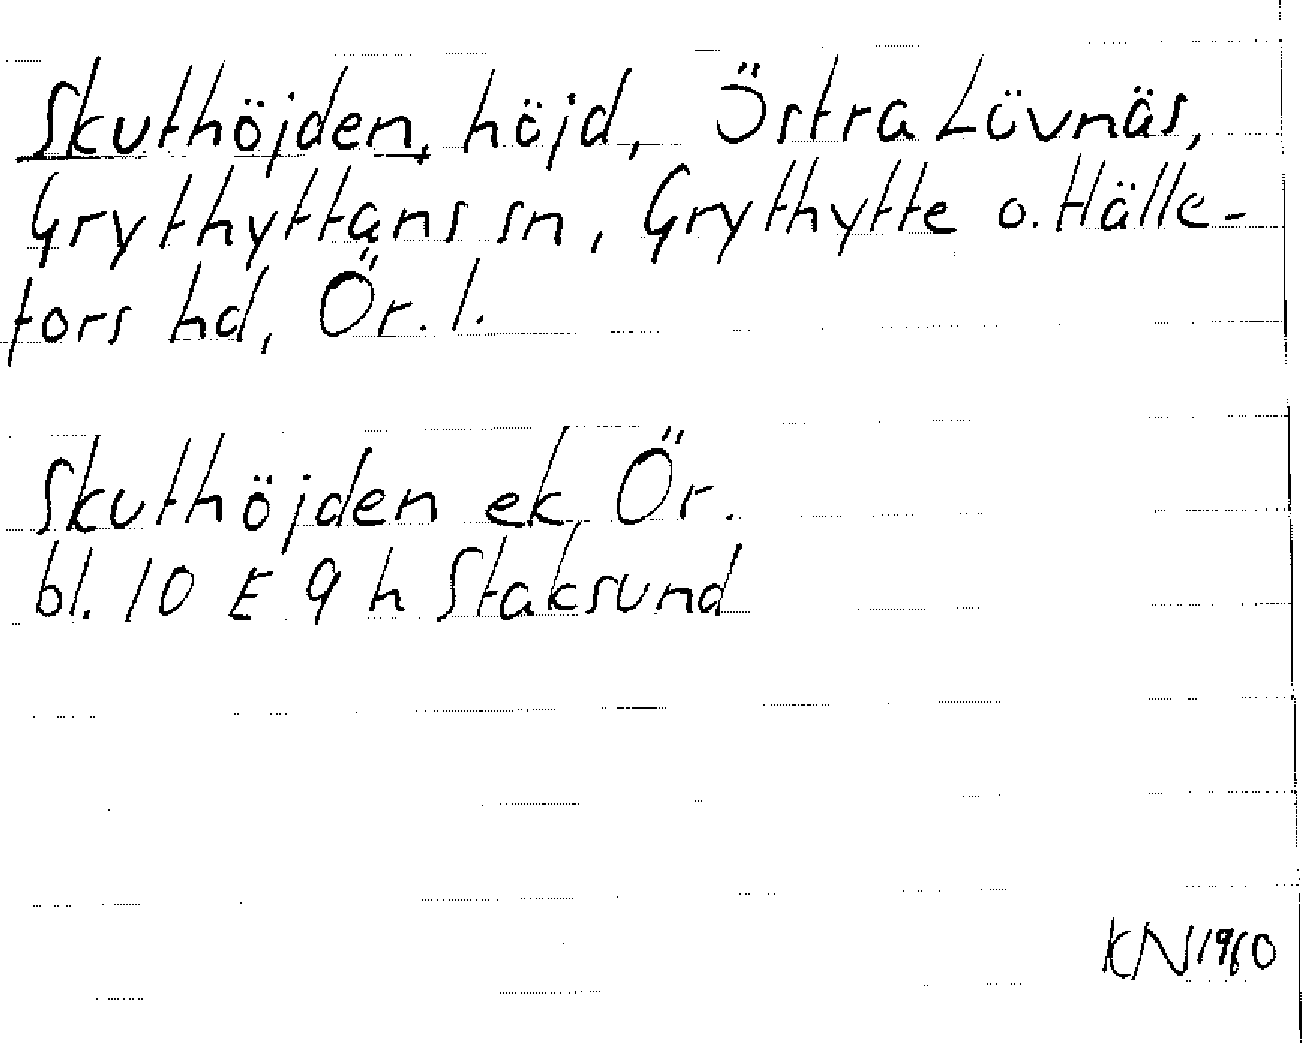 Skuthöjden, höjd, Östra Lövnäs,
Grythyttans sn, Grythytte o. Hälle-
fors hd, Ör. l.
Skuthöjden ek Ör.
bl. 10 E 9 h Staksund
KN 1960